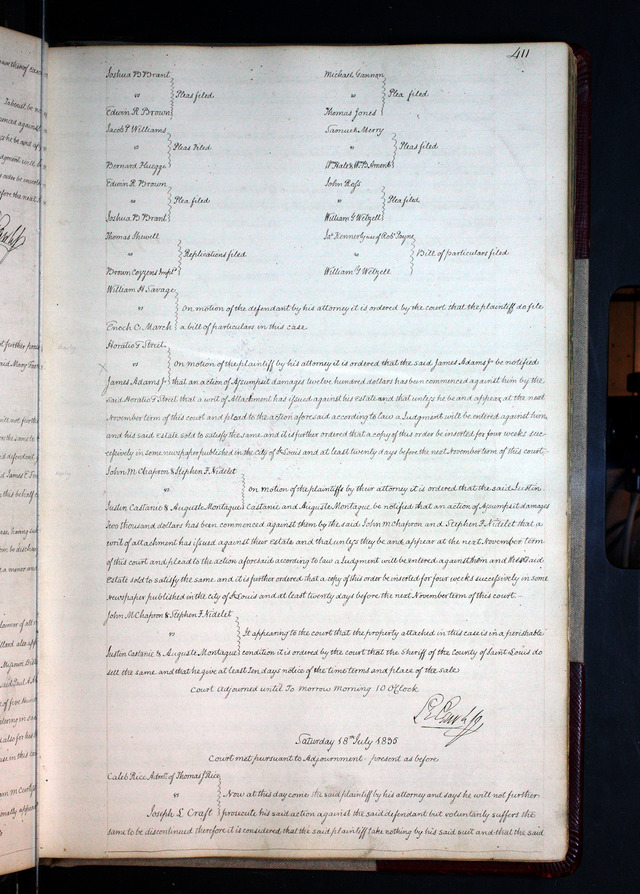 411
Joshua B Brant
vs } Pleas filed
Edwin R Brown
Michael Gannon
vs } Plea filed
Thomas Jones
Jacob P Williams
vs } Pleas filed
Bernard Huegge
Samuel Merry
vs } Pleas filed
Edwin R Brown
vs } Plea filed
Joshua B Brant
John Rass
vs } Plea filed
William G Wetzell
Thomas Shewell
vs } Replications filed
Brown Cozzens
vs } Bill of particulars filed
William G Wetzell
William H Savage
vs } On motion of the defendant by his attorney it is ordered by the court that the plaintiff do file
Enoch C. March } a bill of particulars in this case
Horatio T Street
vs } On motion of the plaintiff by his attorney it is ordered that the said James Adams Jr be notified
James Adams Jr } that an action of Assumpsit damages twelve hundred dollars has been commenced against him by the
said Horatio T Street that a writ of Attachment has issued against his estate and that unless he be and appear at the next
November term of this court and plead to the action aforesaid according to law a Judgment will be entered against him,
and his said estate sold to satisfy the same. and it is further ordered that a copy of this order be inserted for four weeks suc-
cessively in some newspaper published in the city of St Louis and at least twenty days before the next November term of this court.-
John M Chapron & Stephen F. Nidelet
vs } On motion of the plaintiffs by their attorney it is ordered that the said Justin
Justin Castanie & Auguste Montague } Castanie and Auguste Montague, be notified that an action of Assumpsit damages
two thousand dollars has been commenced against them by the said John M Chapron and Stephen F. Nidelet that a
writ of attachment has issued against their Estate and that unless they be and appear at the next November term
of this court and plead to the action aforesaid according to law a Judgment will be entered against them and their said
Estate sold to satisfy the same and it is further ordered that a copy of this order be inserted for four weeks successively in some
newspaper published in the city of St Louis and at least twenty days before the next November term of this court.-
John M Chapron & Stephen F. Nidelet
vs } It appearing to the court that the property attached in this case is in a perishable
Justin Castanie & Auguste Montague } condition it is ordered by the court that the Sheriff of the County of Saint Louis do
sell the same and that he give at least Ten days notice of the time terms and place of the sale
Court adjourned until To morrow morning 10 O'Clock
Saturday 18th July 1835
Court met pursuant to Adjournment - present as before
Caleb Rice Admr. of Thomas J Rice
vs } Now at this day come the said plaintiff by his attorney and says he will not further
Joseph L Craft } prosecute his said action against the said defendant but voluntarily suffers the
same to be discontinued therefore it is considered that the said plaintiff take nothing by his said suit and that the said